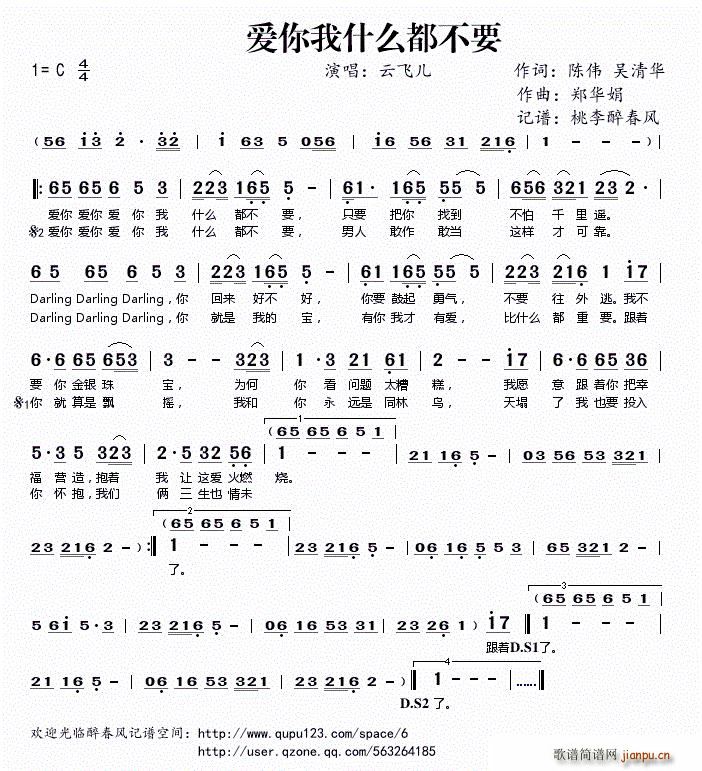 爱你我什么都不要
1= C 4/4 演唱：云飞儿 作词：陈伟 吴清华
作曲：郑华娟
记谱：桃李醉春风
（56 i3 2 · 32 | i 63 5 056 | i6 56 31 216 | 1 - - - ）
‖: 65 65 6 5 3 | 223 165 5 - | 61 · 165 55 5 | 656 321 23 2 · |
爱你 爱你 爱 你 我 什么 都不 要， 只要 把你 找到 不怕 千里 遥。
𝄋2 爱你 爱你 爱 你 我 什么 都不 要， 男人 敢作 敢当 这样 才可 靠。
6 5 65 6 5 3 | 223 165 5 - | 61 165 55 5 | 223 216 1 i7 |
Darling Darling Darling，你 回来 好不 好， 你要 鼓起 勇气， 不要 往外 逃。我不
Darling Darling Darling，你 就是 我的 宝， 有你 我才 有爱， 比什么 都 重要。跟着
6 · 6 65 653 | 3 - - 323 | 1 · 3 21 61 | 2 - - i7 | 6 · 6 65 36 |
要 你 金银 珠 宝， 为何 你 看 问题 太糟 糕， 我愿 意 跟着 你 把幸
𝄋1你 就 算是 飘 摇， 我和 你 永 远是 同林 鸟， 天塌 了 我 也要 投入
（65 65 6 5 1）
5 · 3 5 323 | 2 · 5 32 56 | 1 - - - | 21 16 5 - | 03 56 53 321 |
福 营 造，抱着 我 让 这爱 火燃 烧。
你 怀 抱，我们 俩 三 生也 情未
（65 65 6 5 1）
23 216 2 - ）:‖ 1 - - - | 23 216 5 - | 06 16 53 3 | 65 35 321 2 |
了。
（65 65 6 5 1）
5 6i 5 · 3 | 23 216 5 - | 06 16 53 31 | 23 26 1 ）i7 ‖ 1 - - - |
跟着D.S1了。
21 16 5 - | 06 16 53 31 | 23 216 5 - ）‖ 1 - - - |……‖
D.S2 了。
欢迎光临醉春风记谱空间：http://www.qupu123.com/space/6
http://user.qzone.qq.com/563264185
歌谱简谱网 jianpu.cn